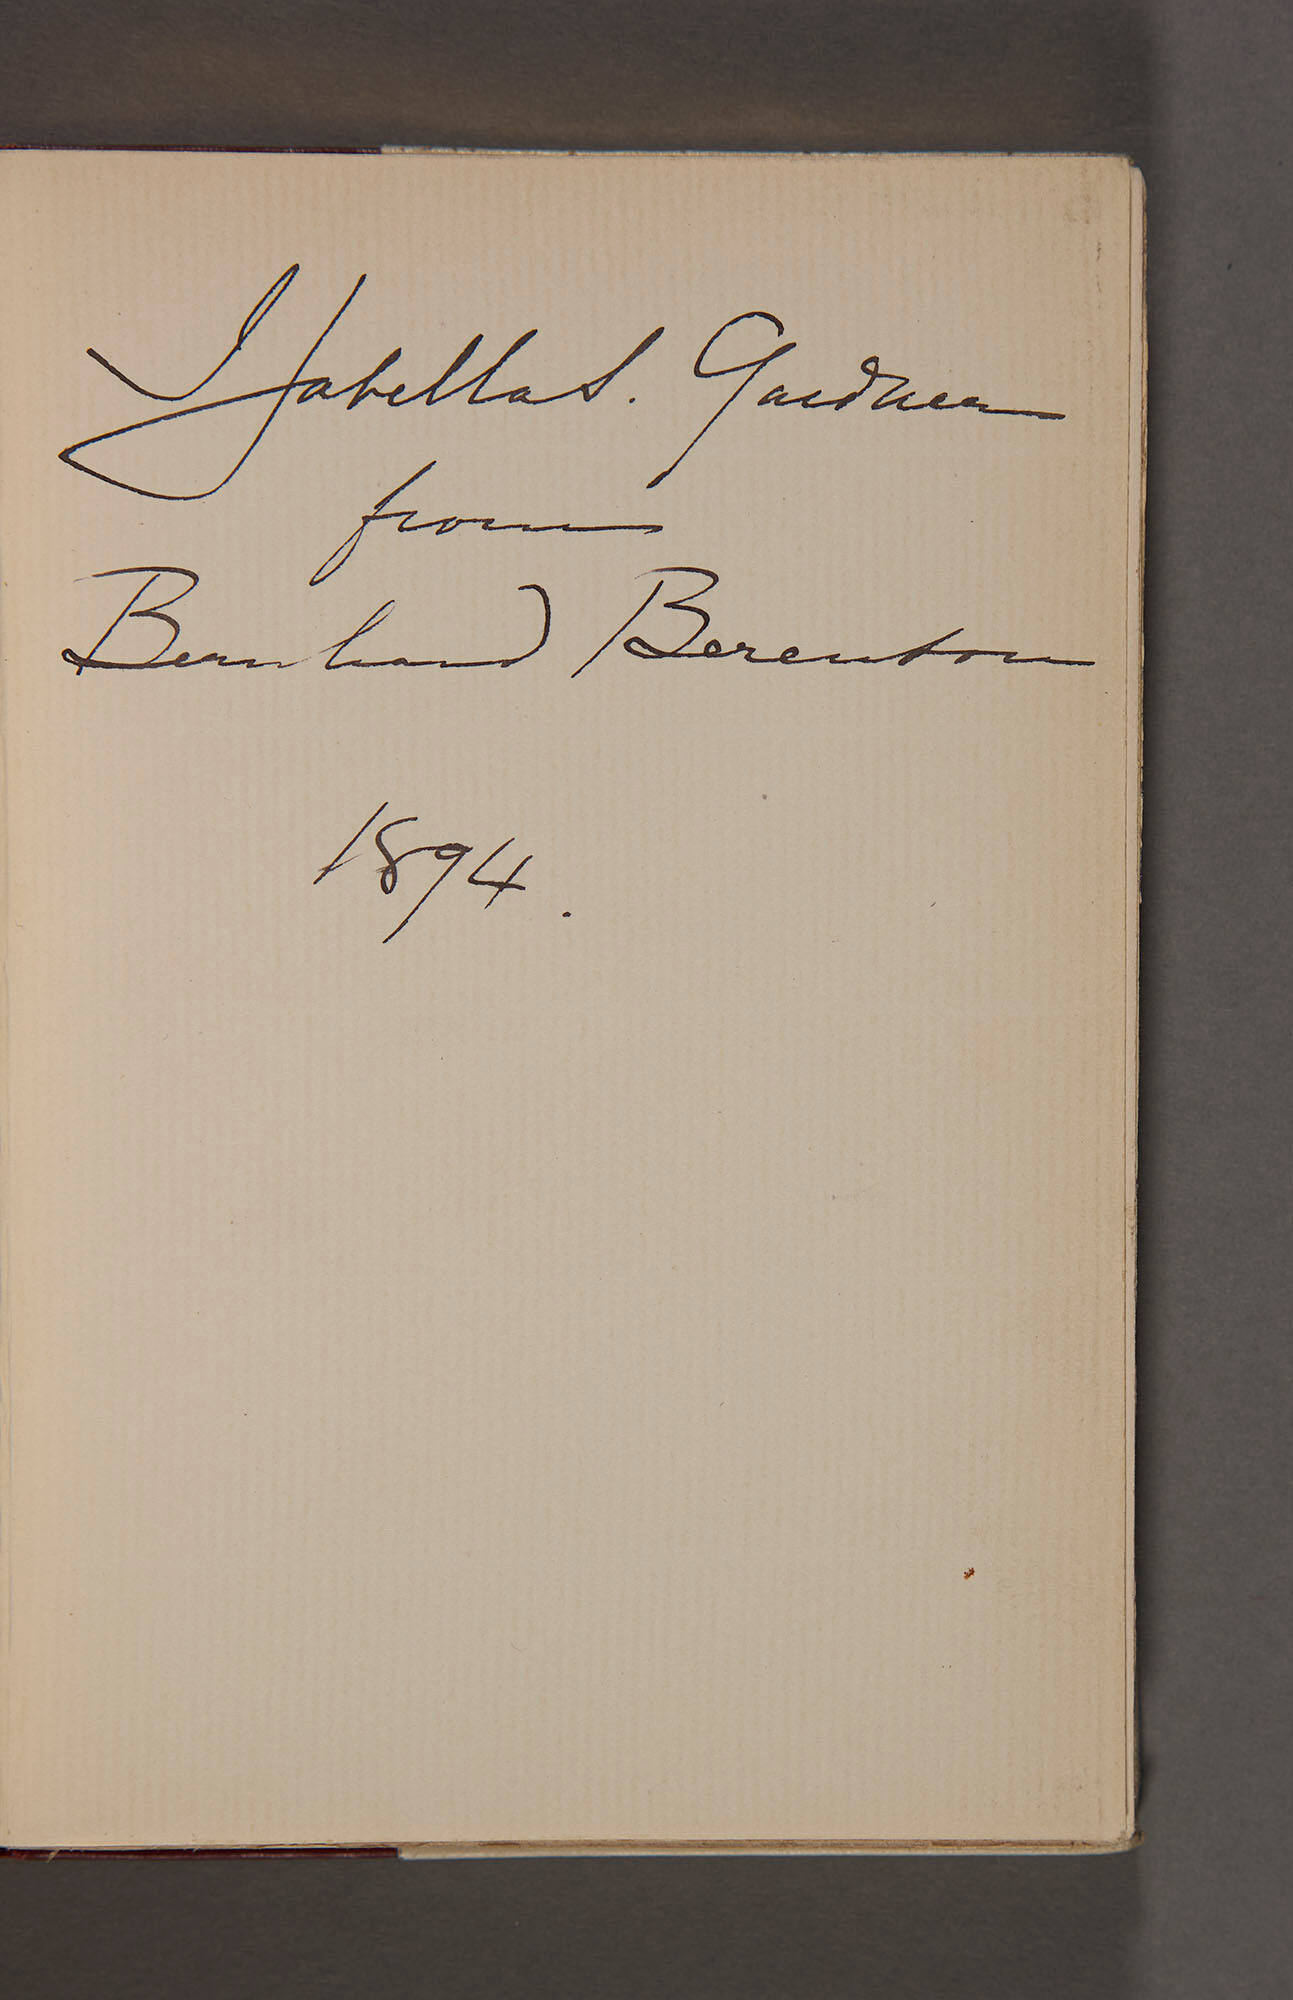 Isabella S. Gardner
from
Bernhard Berenson
1894.